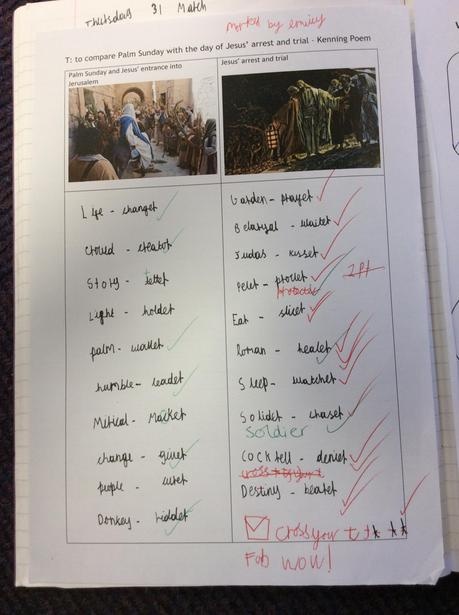 Thursday 31 March
Marked by
T: to compare Palm Sunday with the day of Jesus' arrest and trial - Kenning Poem
Palm Sunday and Jesus' entrance into
Jerusalem
Life - changer
Croud - creator
Story - teller
Light - holder
palm -
humble - leader
Mirical - Macker
change - giver
people - curer
Donkey - ridder
Jesus' arrest and trial
Garden - prayer
Betaryal - waiter
Judas - kisser
Peter -
Ear - slicer
Roman - healer
Sleep - watcher
Solider - chaser
Soldier
Cock tell - denier
Destiny - bearer
Cross your t
Fab now!